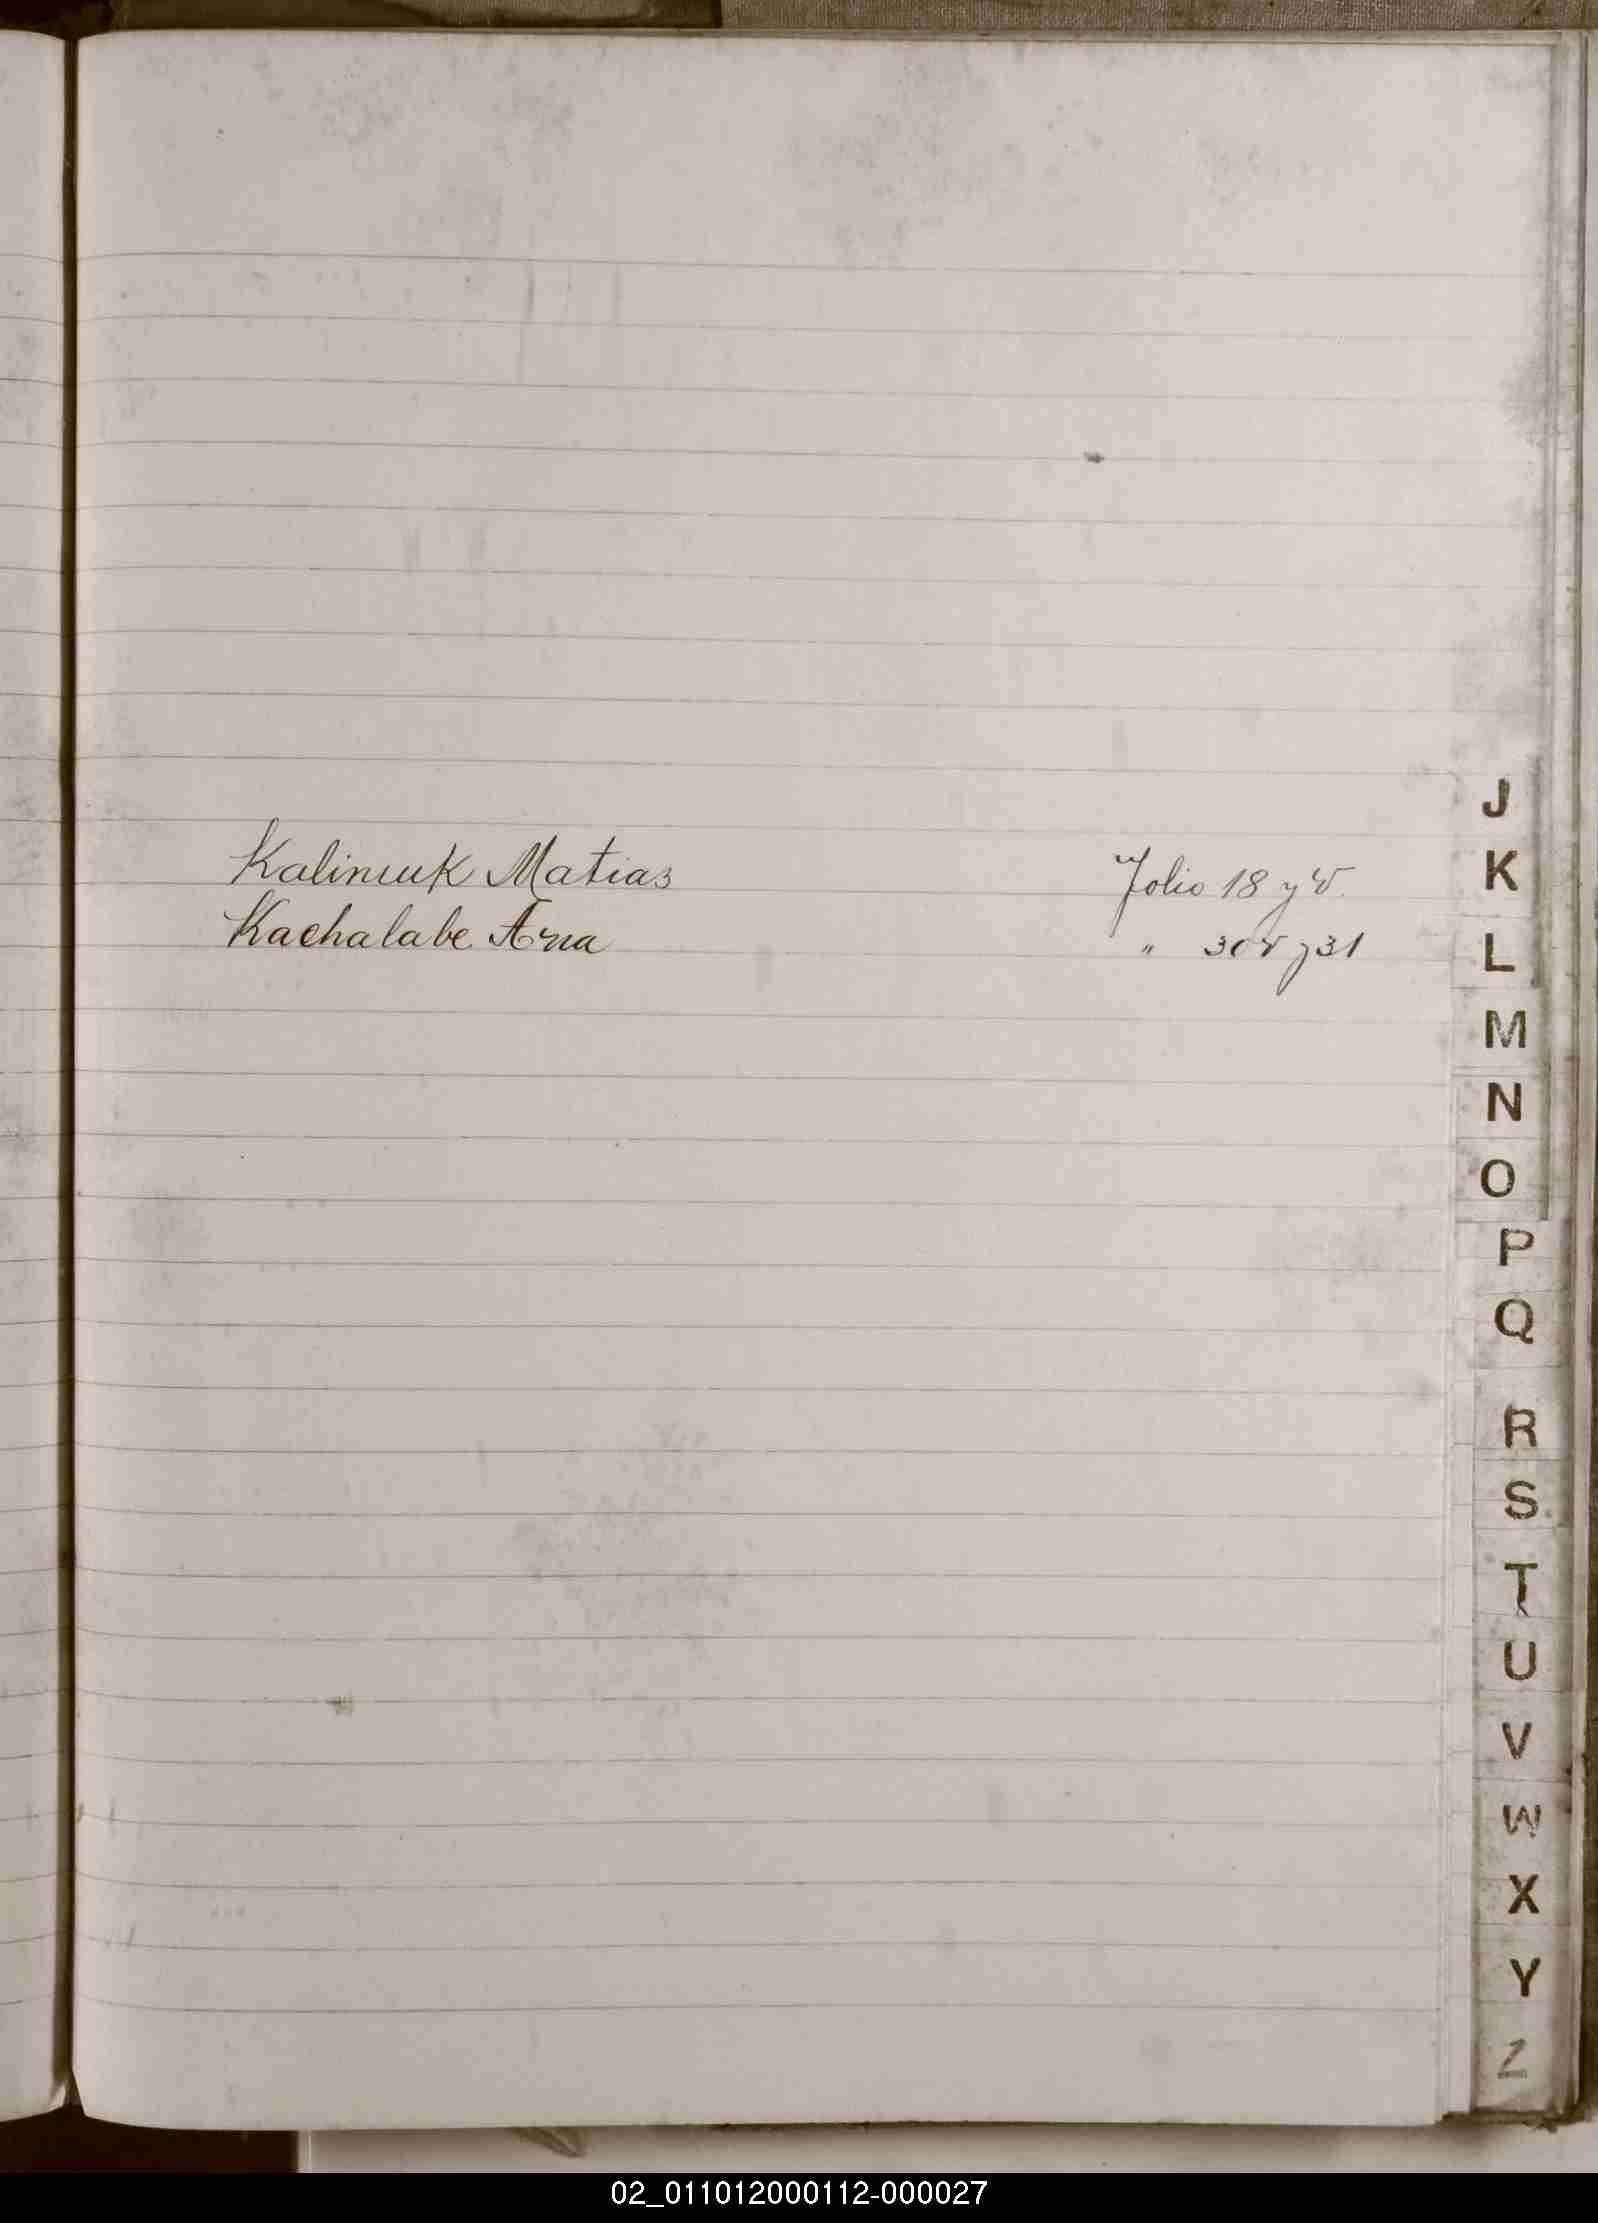 Kaliniuk Matias Folio 18 y v.
Kachalabe Ana " 30 v y 31
J
K
L
M
N
O
P
Q
R
S
T
U
V
W
X
Y
Z
02_011012000112-000027